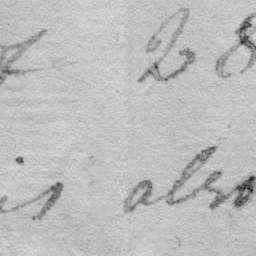 28
is also